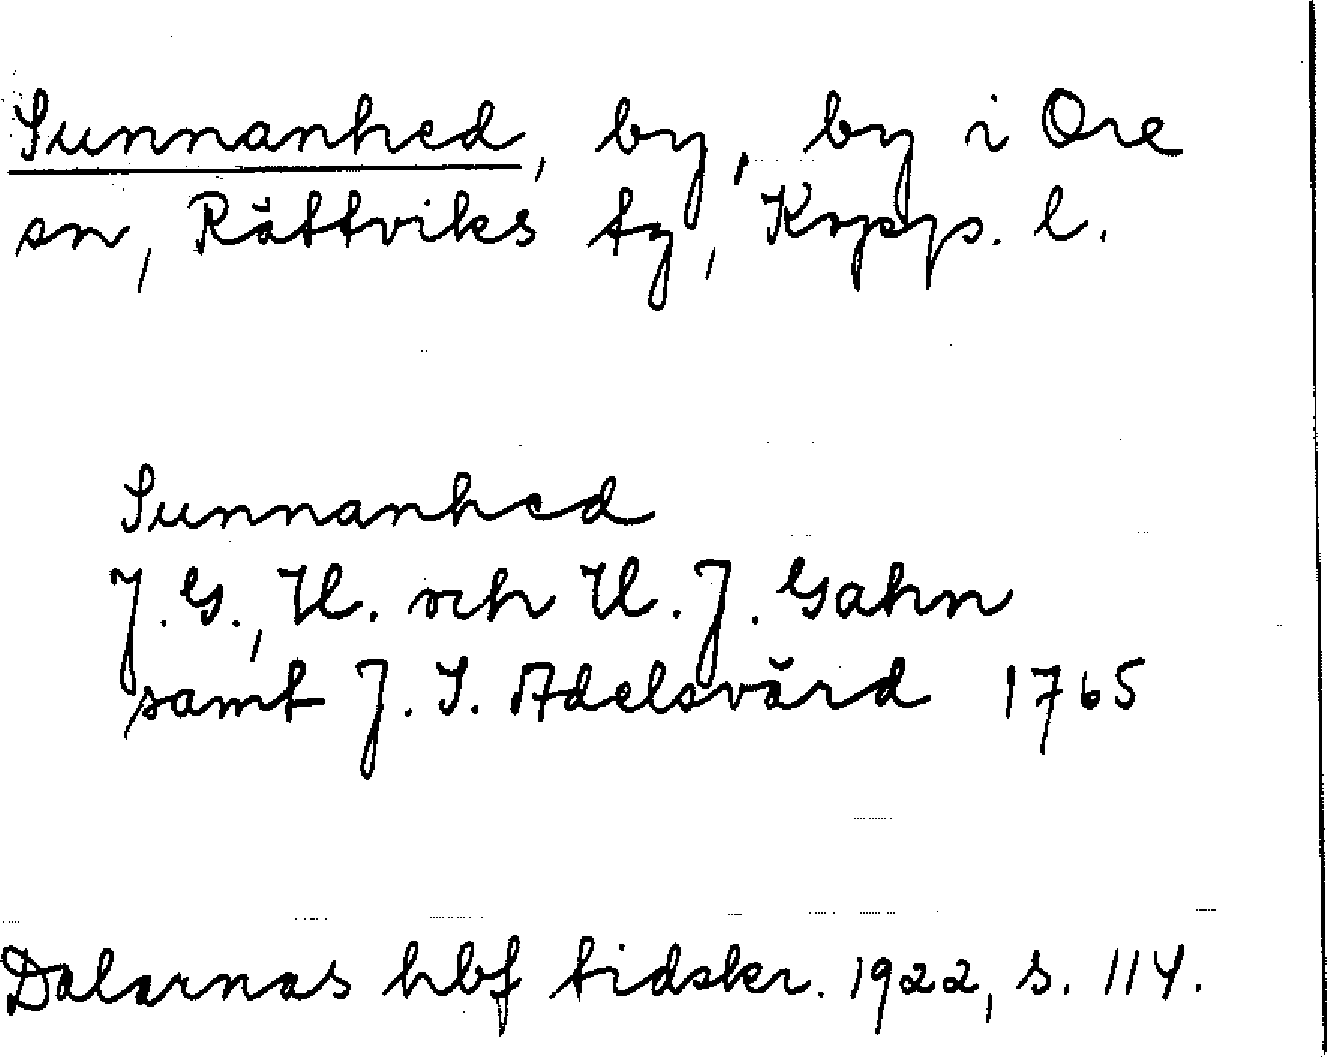 Sunnanhed, by, by i Ore
sn, Rättviks tg, Kopp. l.
Sunnanhed
J. G., H. och H. J. Gahn
samt J. S. Adelsvärd 1765
Dalarnas hbf tidskr. 1922, s. 114.